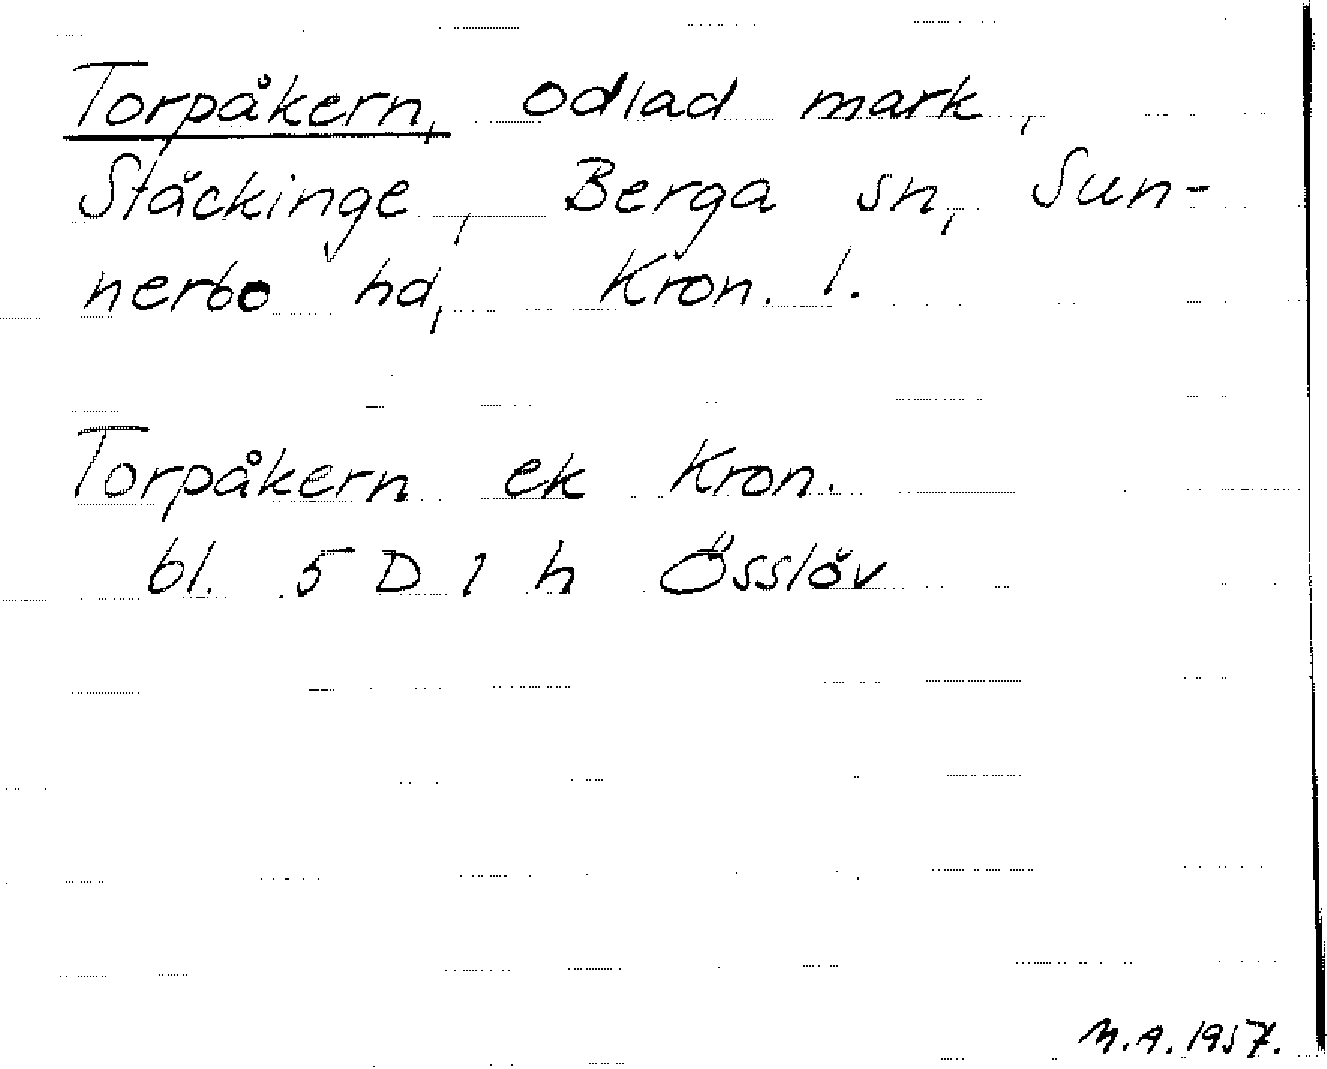 Torpåkern, odlad mark,
Stäckinge, Berga sn, Sun-
nerbo hd, Kron. l.
Torpåkern ek Kron.
bl. 5 D 1 h Össlöv
M.A. 1957.